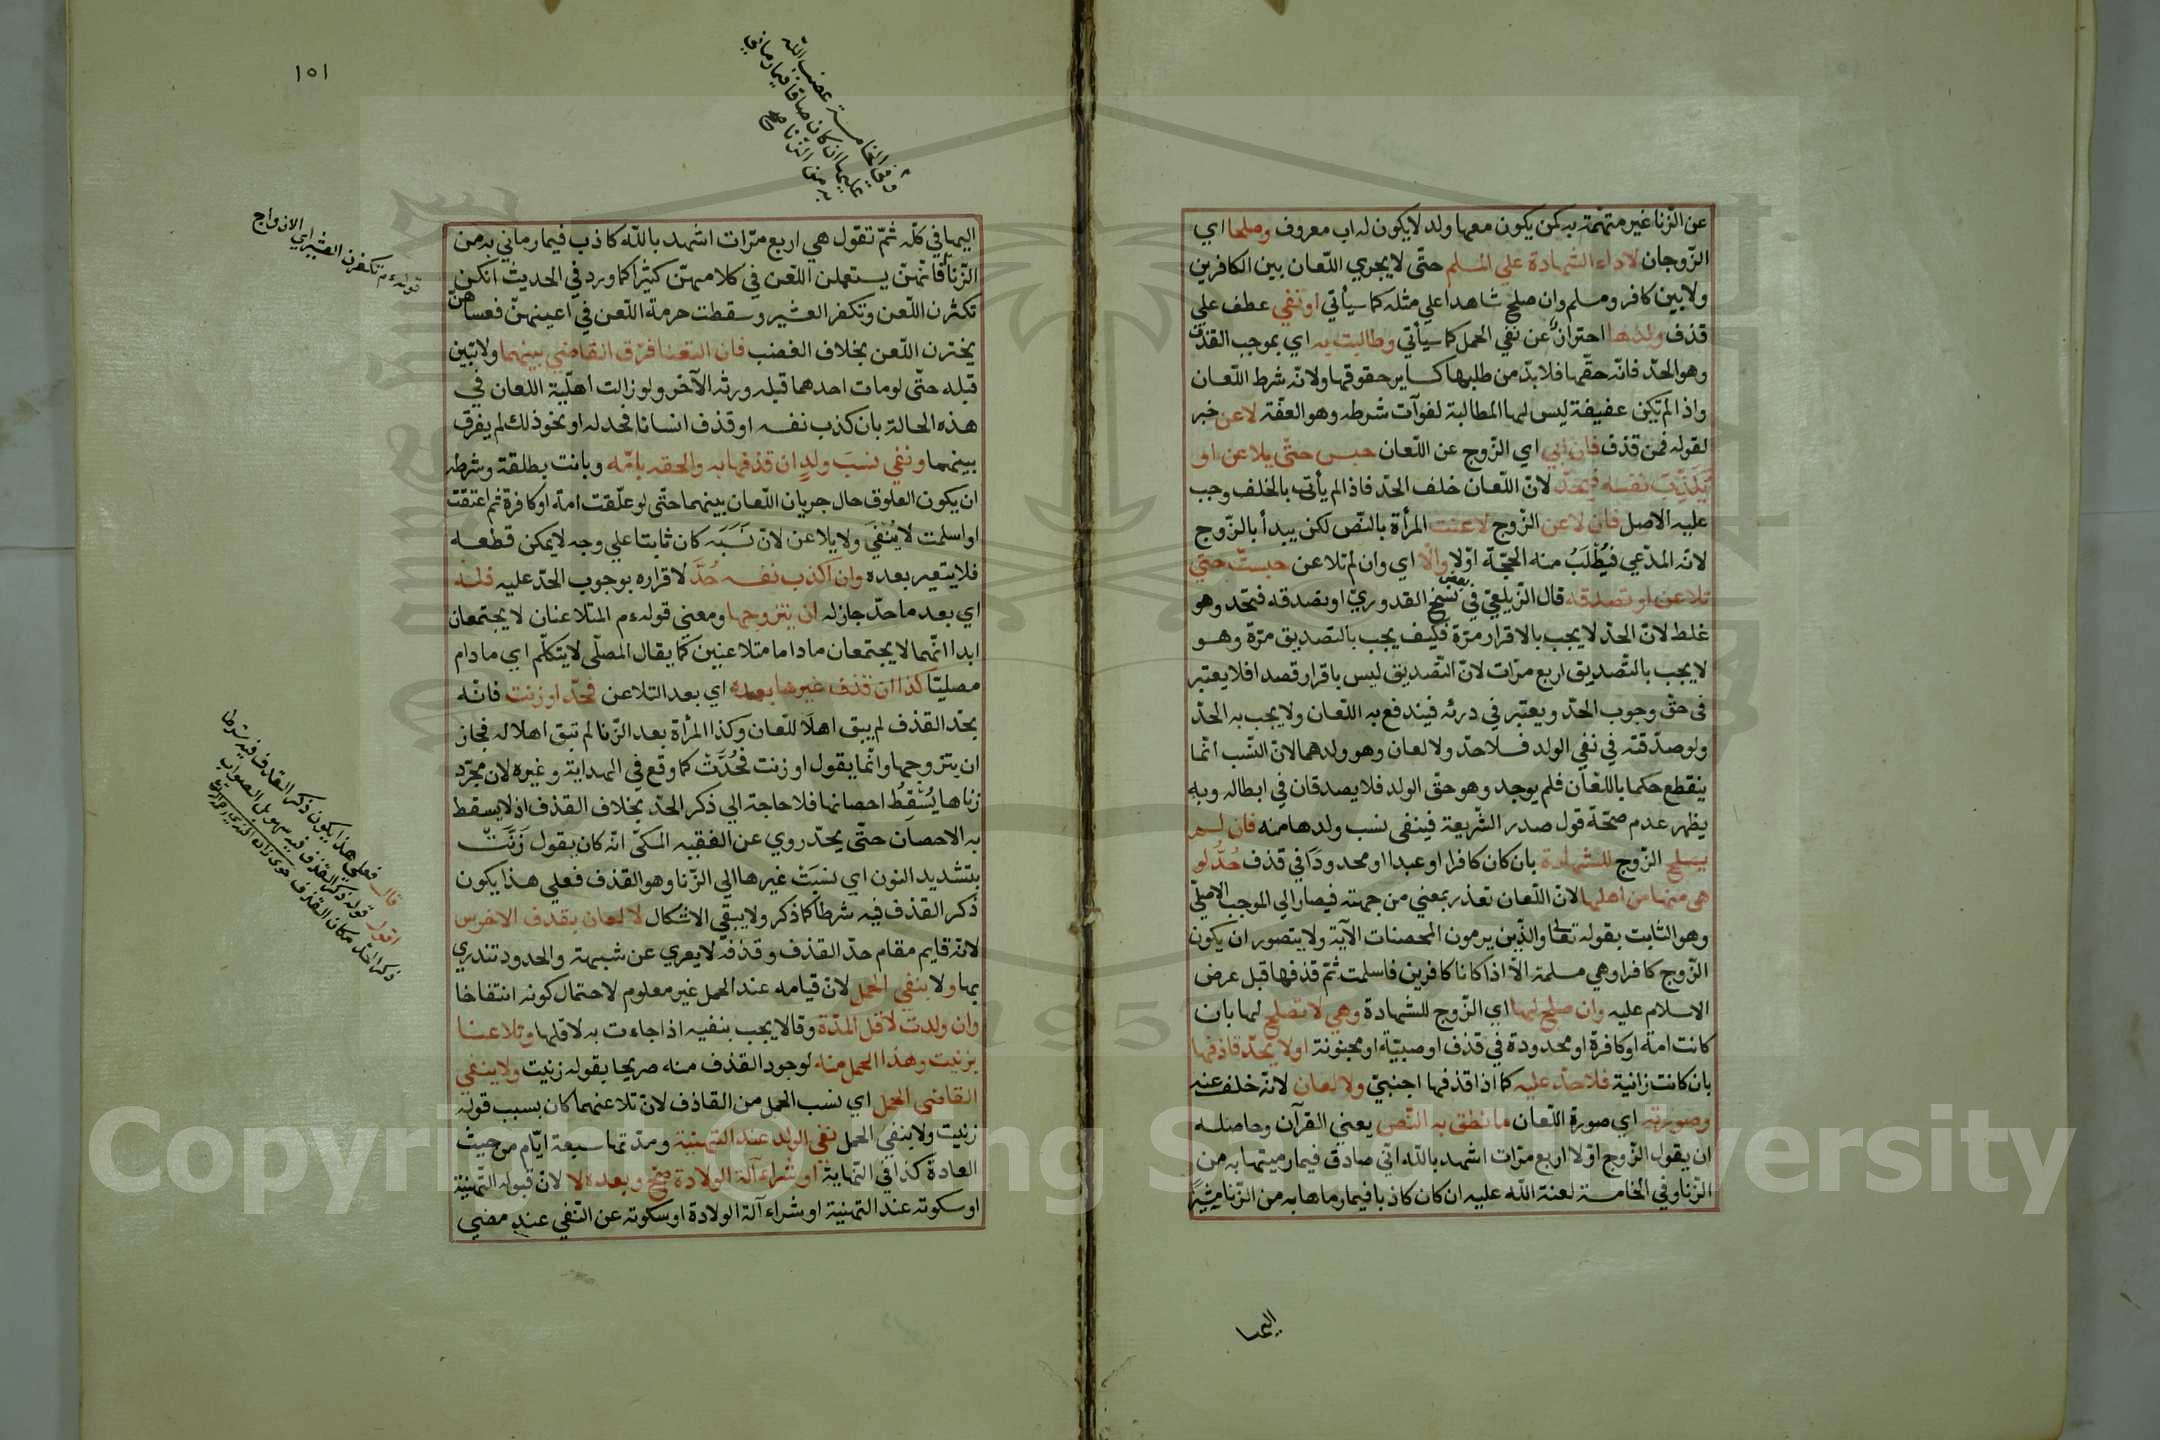 عن الزّنا غير متهمّة به كمن يكون معها ولد لا يكون له اب معروف وصلحا اي
الزّوجان لاداء الشهادة علي المسلم حتّى لا يجري اللّعان بين الكافرين
ولا بين كافر ومسلم وان صلح شاهدا علي مثله كما سيأتي او نفي عطف علي
قذف ولدها احتراز عن نفي الحمل كما سيأتي وطالبت به اي بموجب القذف
وهو الحدّ فانّه حقّها فلا بدّ من طلبها كساير حقوقها ولانّه شرط اللّعان
واذا لم تكن عفيفة ليس لها المطالبة لفوآت شرطه وهو العفّة لاعن خبر
لقوله فمن قذف فان ابي اي الزّوج عن اللّعان حبس حتّى يلاعن او
يكذّب نفسه فيحدّ لانّ اللّعان خلف الحدّ فاذا لم يأتي بالخلف وجب
عليه الاصل فان لاعن الزّوج لاعنت المرأة بالنّص لكن يبدأ بالزّوج
لانّه المدّعي فيُطْلَبُ منه الحجّة اوّلا والّا اي وان لم تلاعن حبست حتي
تلاعن او تصدقه قال الزّيلعيّ في بعض نسخ القدوريّ او تصدقه فتحّد وهو
غلط لانّ الحدّ لا يجب بالاقرار مرّة فكيف يجب بالتصديق مرّة وهو
لا يجب بالتّصديق اربع مرّات لانّ التّصديق ليس باقرار قصدا فلا يعتبر
فى حقّ وجوب الحدّ ويعتبر في درئه فيندفع به اللّعان ولا يجب به الحدّ
ولو صدّقته في نفي الولد فلا حدّ ولا لعان وهو ولدهما لانّ النّسب انّما
ينقطع حكما باللعّان فلم يوجد وهو حقّ الولد فلا يصدقان في ابطاله وبه
يظهر عدم صحّة قول صدر الشّريعة فينفى نسب ولدها منه فان لم
يصلح الزّوج للشهادة بان كان كافرا او عبدا او محدودًا في قذف حُدَّ لو
هي منها من اهلها لانّ اللّعان تعذر بمعني من جهته فيصار الي الموجب الاصليّ
وهو الثابت بقوله تعالى والذّين يرمون المحصنات الآية ولا يتصور ان يكون
الزّوج كافرا وهي مسلمة الّا اذا كانا كافرين فاسلمت ثمّ قذفها قبل عرض
الاسلام عليه وان صلح لها اي الزّوج للشهادة وهي لا تصلح لها بان
كانت امة او كافرة او محدودة في قذف او صبيّة او مجنونة او لا يحدّ قاذفها
بان كانت زانية فلا حدّ عليه كما اذا قذفها اجنبيّ ولا لعان لانّه خلف عنه
وصورته اي صورة اللّعان ما نطق به النّص يعني القرآن وحاصله
ان يقول الزّوج اوّلا اربع مرّات اشهد باللّه انّي صادق فيما رميتها به من
الزّنا وفي الخامسة لعنة اللّه عليه ان كان كاذبا فيما رماها به من الزّنا مشيرًا
اليها
١٥١
وفي الخامسة غضب اللّه
عليها ان كان صادقا فيما رماني
به من الزّنا صح
اليها في كلّه ثمّ تقول هي اربع مرّات اشهد باللّه كاذب فيما رماني به من
الزّنا فانّهنّ يستعملن اللّعن في كلامهنّ كثيرا كما ورد في الحديث انكن
تكثرن اللّعن وتكفرن العشير وسقطت حرمة اللّعن في اعينهنّ فعساهنّ
يخترن اللّعن بخلاف الغضب فان التعنا فرّق القاضي بينهما ولا تبين
قبله حتّى لو مات احدهما قبله ورثه الآخر ولو زالت اهليّة اللعان في
هذه الحالة بان كذب نفسه او قذف انسانا فحد له او نحو ذلك لم يفرق
بينهما ونفي نسب ولدٍ ان قذفها به والحقه بامّه وبانت بطلقة وشرطه
ان يكون العلوق حال جريان اللّعان بينهما حتّى لو علّقت امة او كافرة ثم اعتقت
او اسلمت لا يُنْفَي ولا يلاعن لانّ نَسَبَه كان ثابتا علي وجه لا يمكن قطعه
فلا يتغير بعده وان اكذب نفسه حُدَّ لاقراره بوجوب الحدّ عليه فله
اي بعد ما حدّ جاز له ان يتزوجها ومعني قوله ءم المتلاعنان لا يجتمعان
ابدا انّهما لا يجتمعان ما داما متلاعنين كما يقال المصلّى لا يتكلّم اي ما دام
مصليّا كذا ان قذف غيرها بعده اي بعد التلاعن فحّد او زنت فانّه
بحّد القذف لم يبق اهلًا للّعان وكذا المرأة بعد الزّنا لم تبق اهلا له فجاز
ان يتزوجها وانّما يقول او زنت فحُدَّتْ كما وقع في الهداية وغيره لان مجرّد
زناها يُسْقِطُ احصانها فلا حاجة الي ذكر الحدّ بخلاف القذف اذ لا يسقط
به الاحصان حتّي يحدّ روي عن الفقيه المكّى انّه كان يقول زَنَّتْ
بتشديد النون اي نسبَتْ غيرها الي الزّنا وهو القذف فعلي هذا يكون
ذكر القذف فيه شرطا كما ذكر ولا يبقي الاشكال لا لعان بقذف الاخرس
لانّه قايم مقام حدّ القذف وقذفه لا يعري عن شبهة والحدود تندري
بها ولا بنفي الحمل لانّ قيامه عند الحمل غير معلوم لاحتمال كونه انتفاخا
وان ولدت لاقل المدّة وقالا يجب بنفيه اذا جاءت به لاقلها وتلاعنا
بزنيت وهذا الحمل منه لوجود القذف منه صريحا بقوله زنيت ولا ينفي
القاضي الحمل اي نسب الحمل من القاذف لانّ تلاعنهما كان بسبب قوله
زنيت ولا بنفي الحمل نفي الولد عند التهنية ومدّتها سبعة ايّام من حيث
العادة كذا في النّهاية او شراء آلة الولادة صحّ وبعده لا لانّ قبوله التّهنية
او سكوته عند التهنية او شراء آلة الولادة او سكوته عن النّفي عند مضي
قوله ءم تكفرن العشير اي الازواج
قال فعلي هذا يكون ذكر القذف فيه شرطا
اقول قوله ذكر القذف فيه سهو بل الصواب
ذكر الحدّ مكان القذف
Copyright © King Saud University
1957